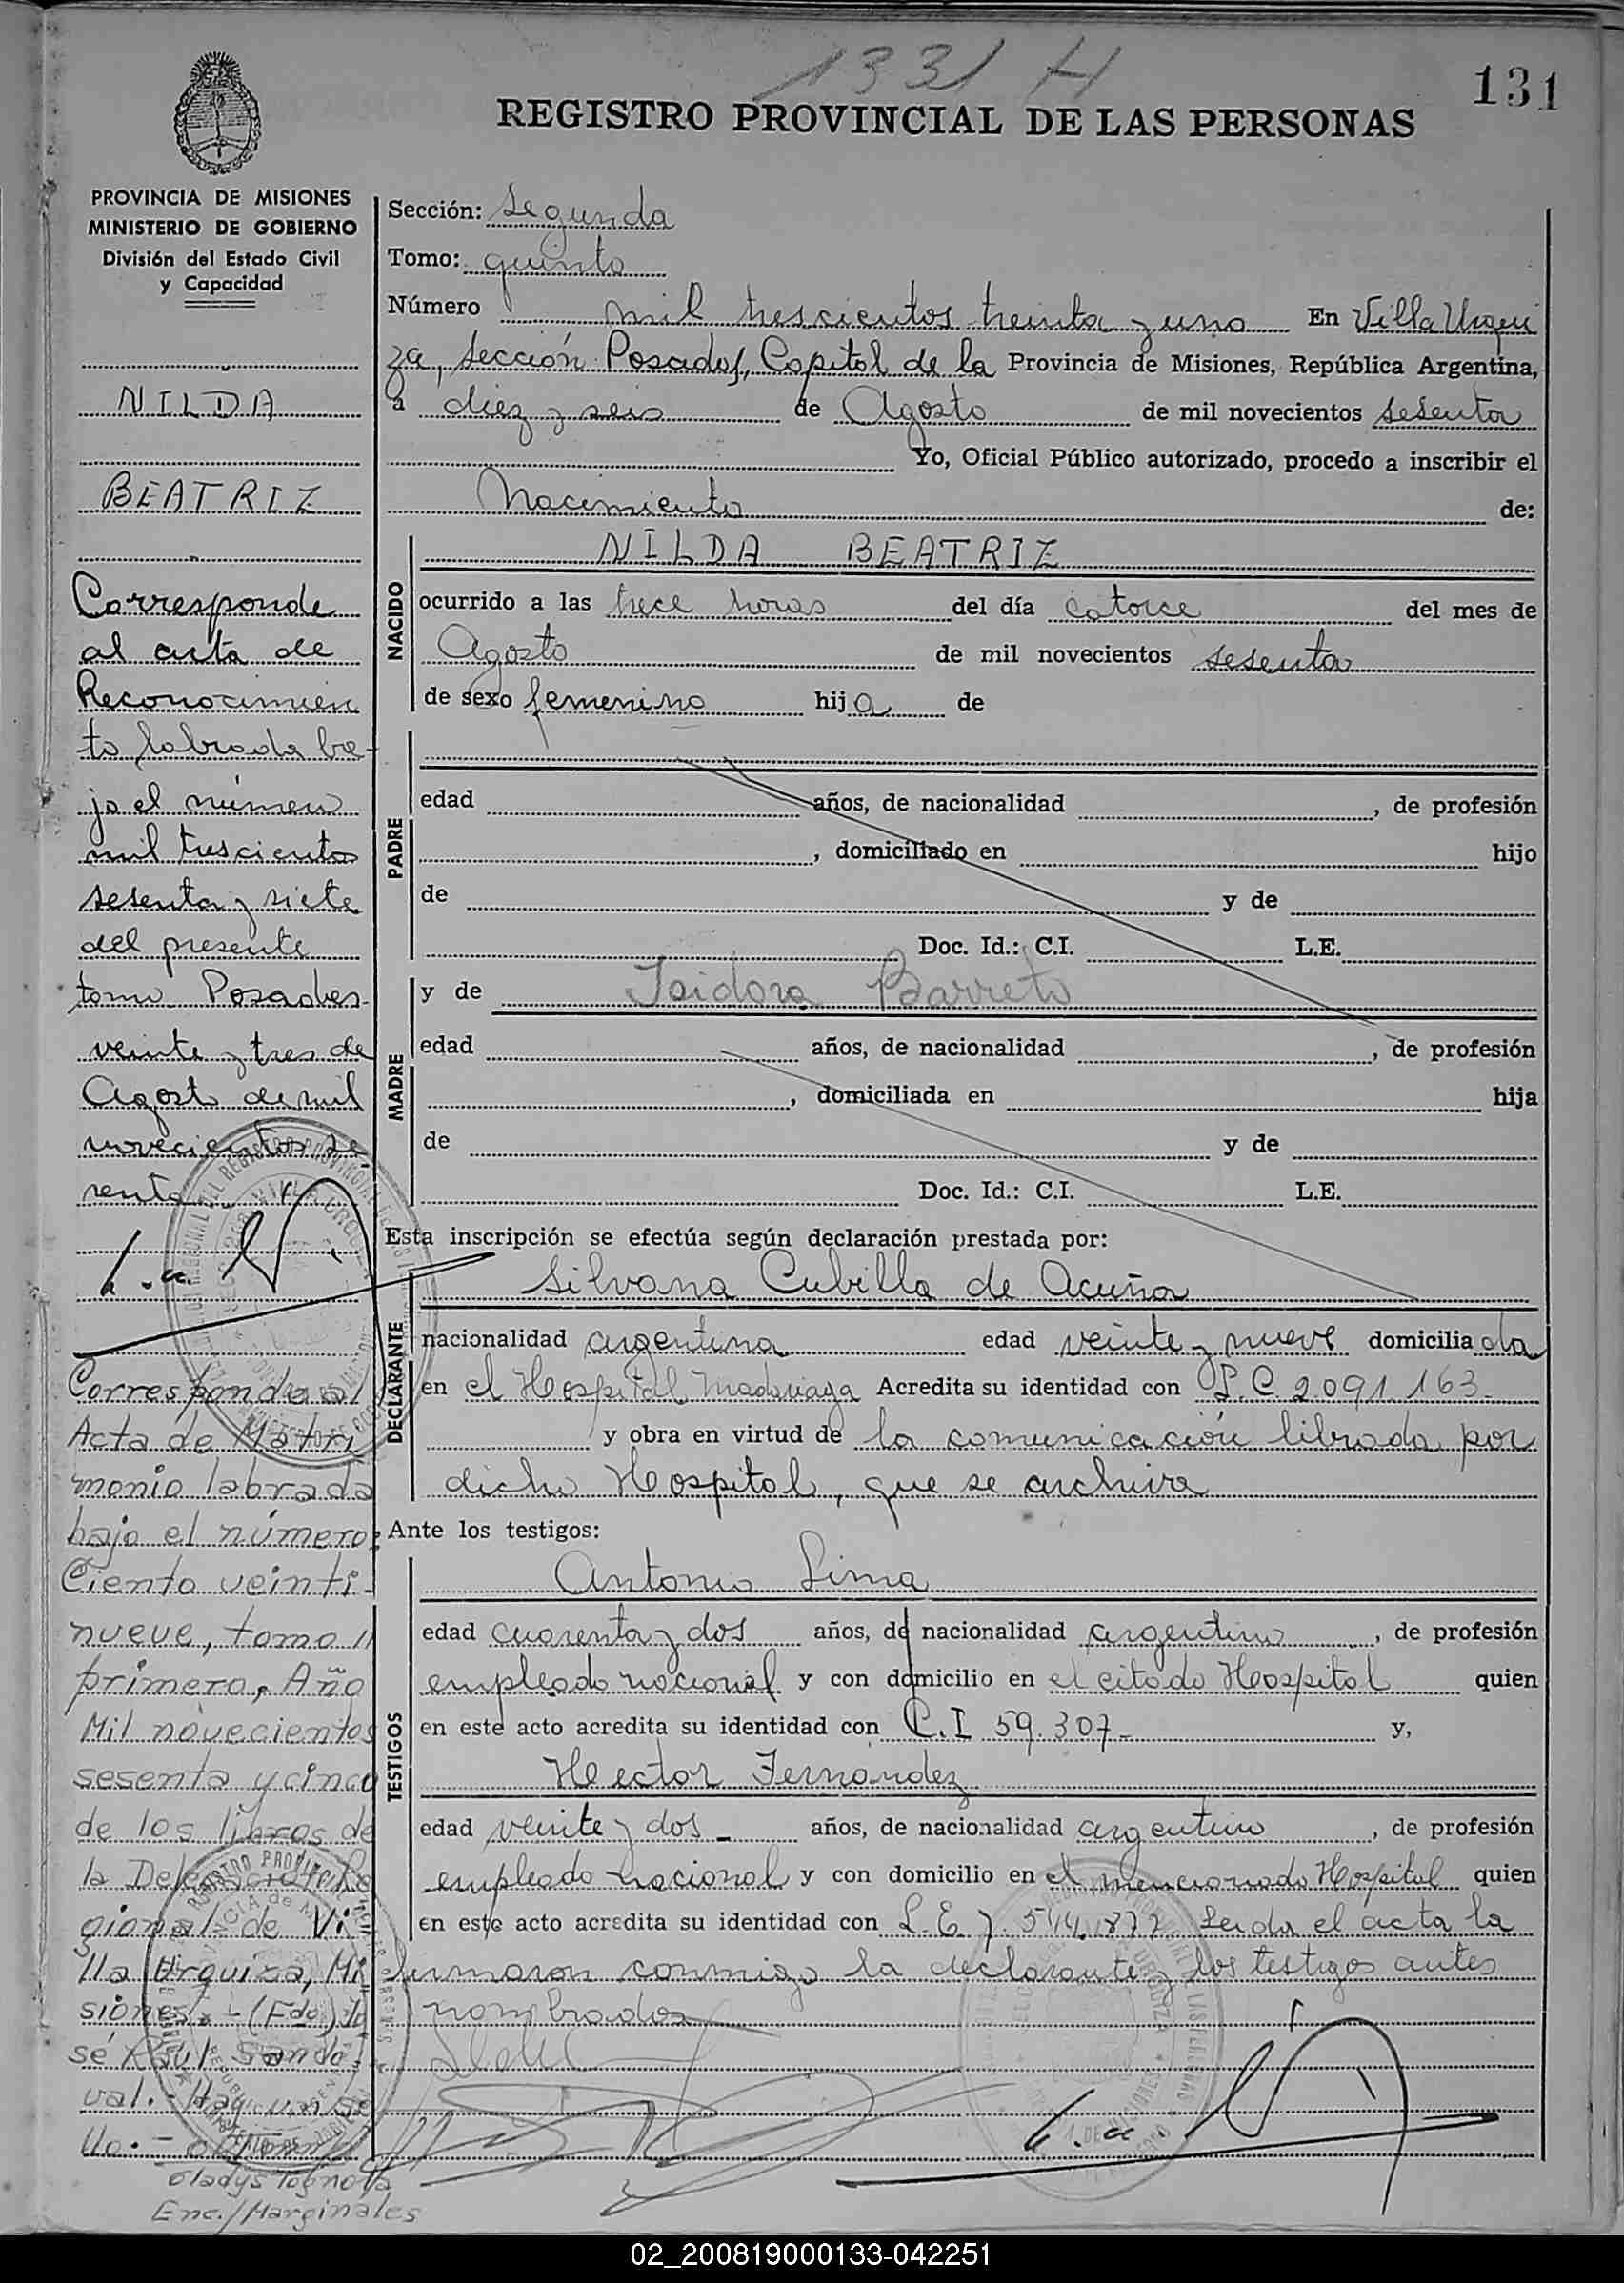 1331 H
131
REGISTRO PROVINCIAL DE LAS PERSONAS
PROVINCIA DE MISIONES
MINISTERIO DE GOBIERNO
División del Estado Civil
y Capacidad
NILDA
BEATRIZ
Corresponde
al acta de
Reconocimien
to labrada ba-
jo el número
mil trescientos
sesenta y siete
del presente
tomo Posadas
veinte y tres de
Agosto de mil
novecientos se
senta
Corresponde al
Acta de Matri
monio labrada
bajo el número:
Ciento veinti-
nueve, tomo
primero, Año
Mil novecientos
sesenta y cinco
de los libros de
la Delegación Re
gional de Vi
lla Urquiza, Mi
siones.- (Fdo) Jo
sé Raúl Sando
val.- Hay un se
llo.-
Gladys Tognola
Enc./Marginales
Sección: Segunda
Tomo: quinto
Número mil trescientos treinta y uno En Villa Urqui
za, Sección Posadas, Capital de la Provincia de Misiones, República Argentina,
a diez y seis de Agosto de mil novecientos sesenta
Yo, Oficial Público autorizado, procedo a inscribir el
Nacimiento de:
NACIDO
NILDA BEATRIZ
ocurrido a las trece horas del día catorce del mes de
Agosto de mil novecientos sesenta
de sexo femenino hija de
PADRE
edad años, de nacionalidad , de profesión
, domiciliado en hijo
de y de
Doc. Id.: C.I. L.E.
MADRE
y de Isidora Barreto
edad años, de nacionalidad , de profesión
, domiciliada en hija
de y de
Doc. Id.: C.I. L.E.
Esta inscripción se efectúa según declaración prestada por:
DECLARANTE
Silvana Cubilla de Acuña
nacionalidad argentina edad veinte y nueve domiciliada
en el Hospital Madariaga Acredita su identidad con L.C. 2.091.163
y obra en virtud de la comunicación librada por
dicho Hospital, que se archiva
Ante los testigos:
TESTIGOS
Antonio Lima
edad cuarenta y dos años, de nacionalidad argentino , de profesión
empleado nacional y con domicilio en el citado Hospital quien
en este acto acredita su identidad con C.I 59.307- y,
Hector Fernandez
edad veinte y dos - años, de nacionalidad argentino , de profesión
empleado nacional y con domicilio en el mencionado Hospital quien
en este acto acredita su identidad con L.E. 7.544.877 Leida el acta la
firmaron conmigo la declarante y los testigos antes
nombrados
02_200819000133-042251